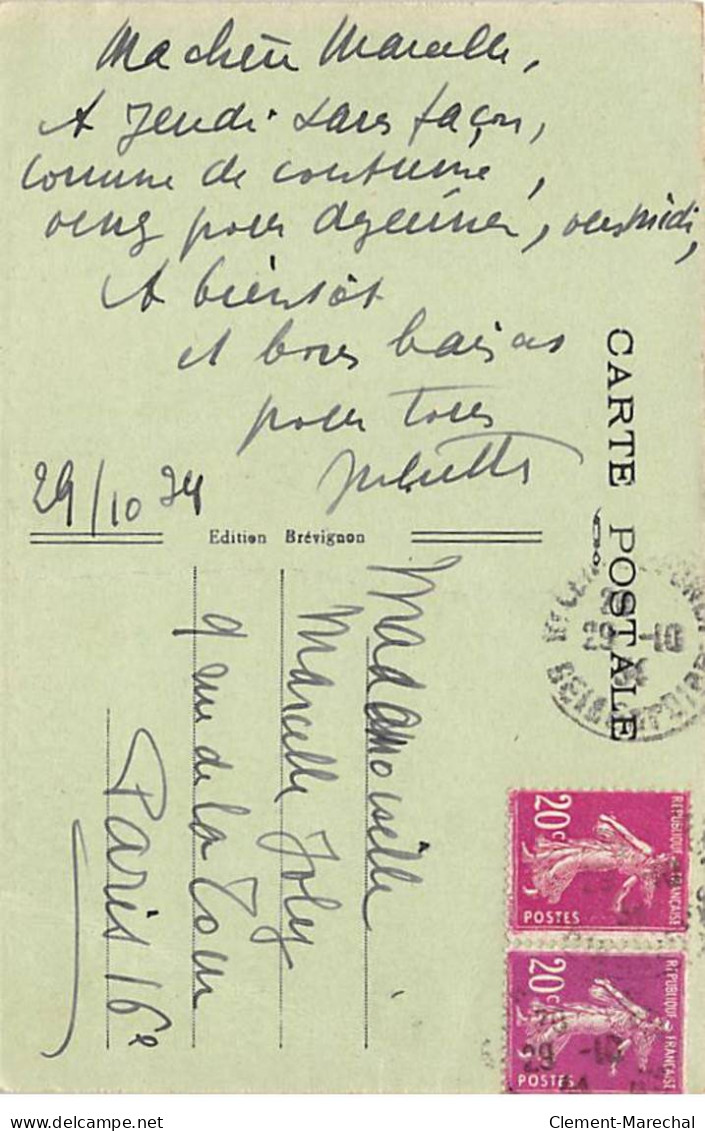 Ma chère Marcelle,
A Jeudi sans façon,
comme de coutume,
venez pour déjeuner, vers midi,
A bientôt
et bons baisers
pour tous
Juliette
29/10 34
Edition Brévignon
CARTE POSTALE
29 -10
34
SEINE
Mademoiselle
Marcelle Joly
9 rue de la Tour
Paris 16e
20c
REPUBLIQUE FRANCAISE
POSTES
20c
REPUBLIQUE FRANCAISE
POSTES
29 -10
34
Clement-Marechal